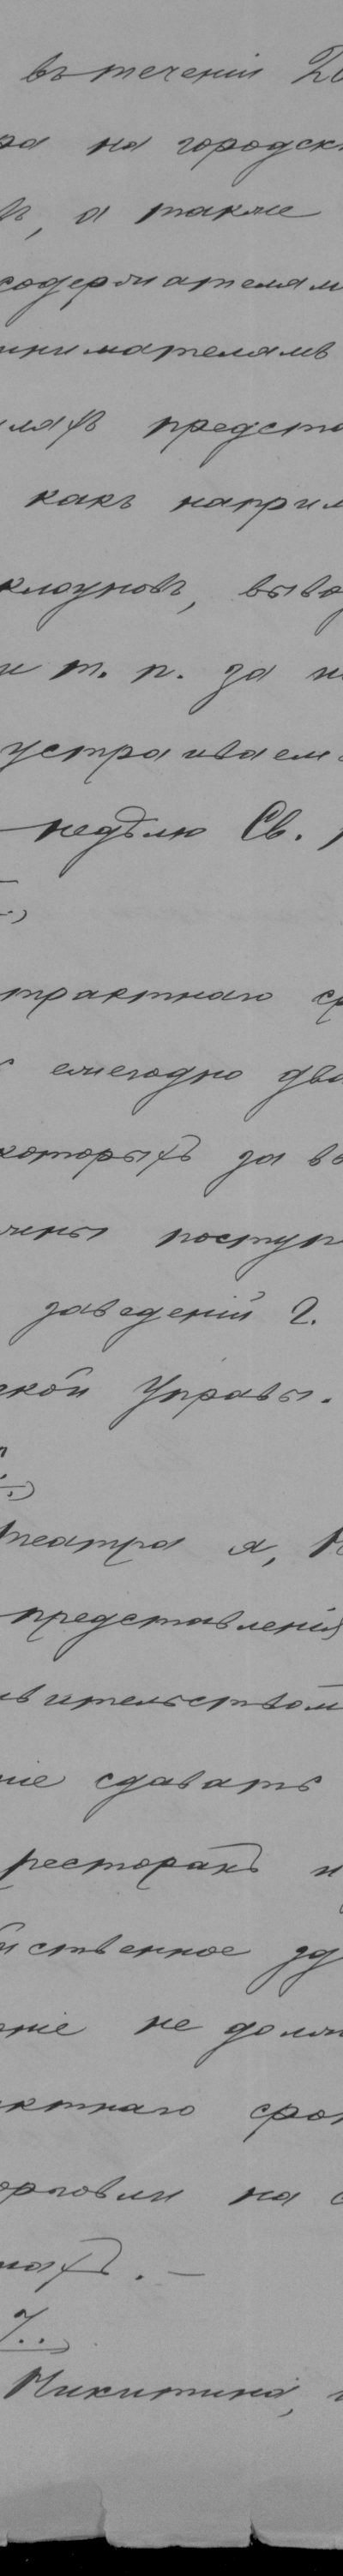 въ теченіи
ра на городск
ъ, а также
содержателям
нимателямъ
лахъ предста
какъ наприм
клоуновъ, выво
и т. п. за и
устраиваем
недѣлю Св.
трактнаго ср
ежегодно два
которыхъ за во
чны поступ
заведеній г.
ской Управы.
театра я, Н
представленія
ительством
ніе сдавать
ресторанъ и
йственное зд
ніе не долж
ктнаго срок
орговли на с
нахъ. —
7.
Никитинъ,